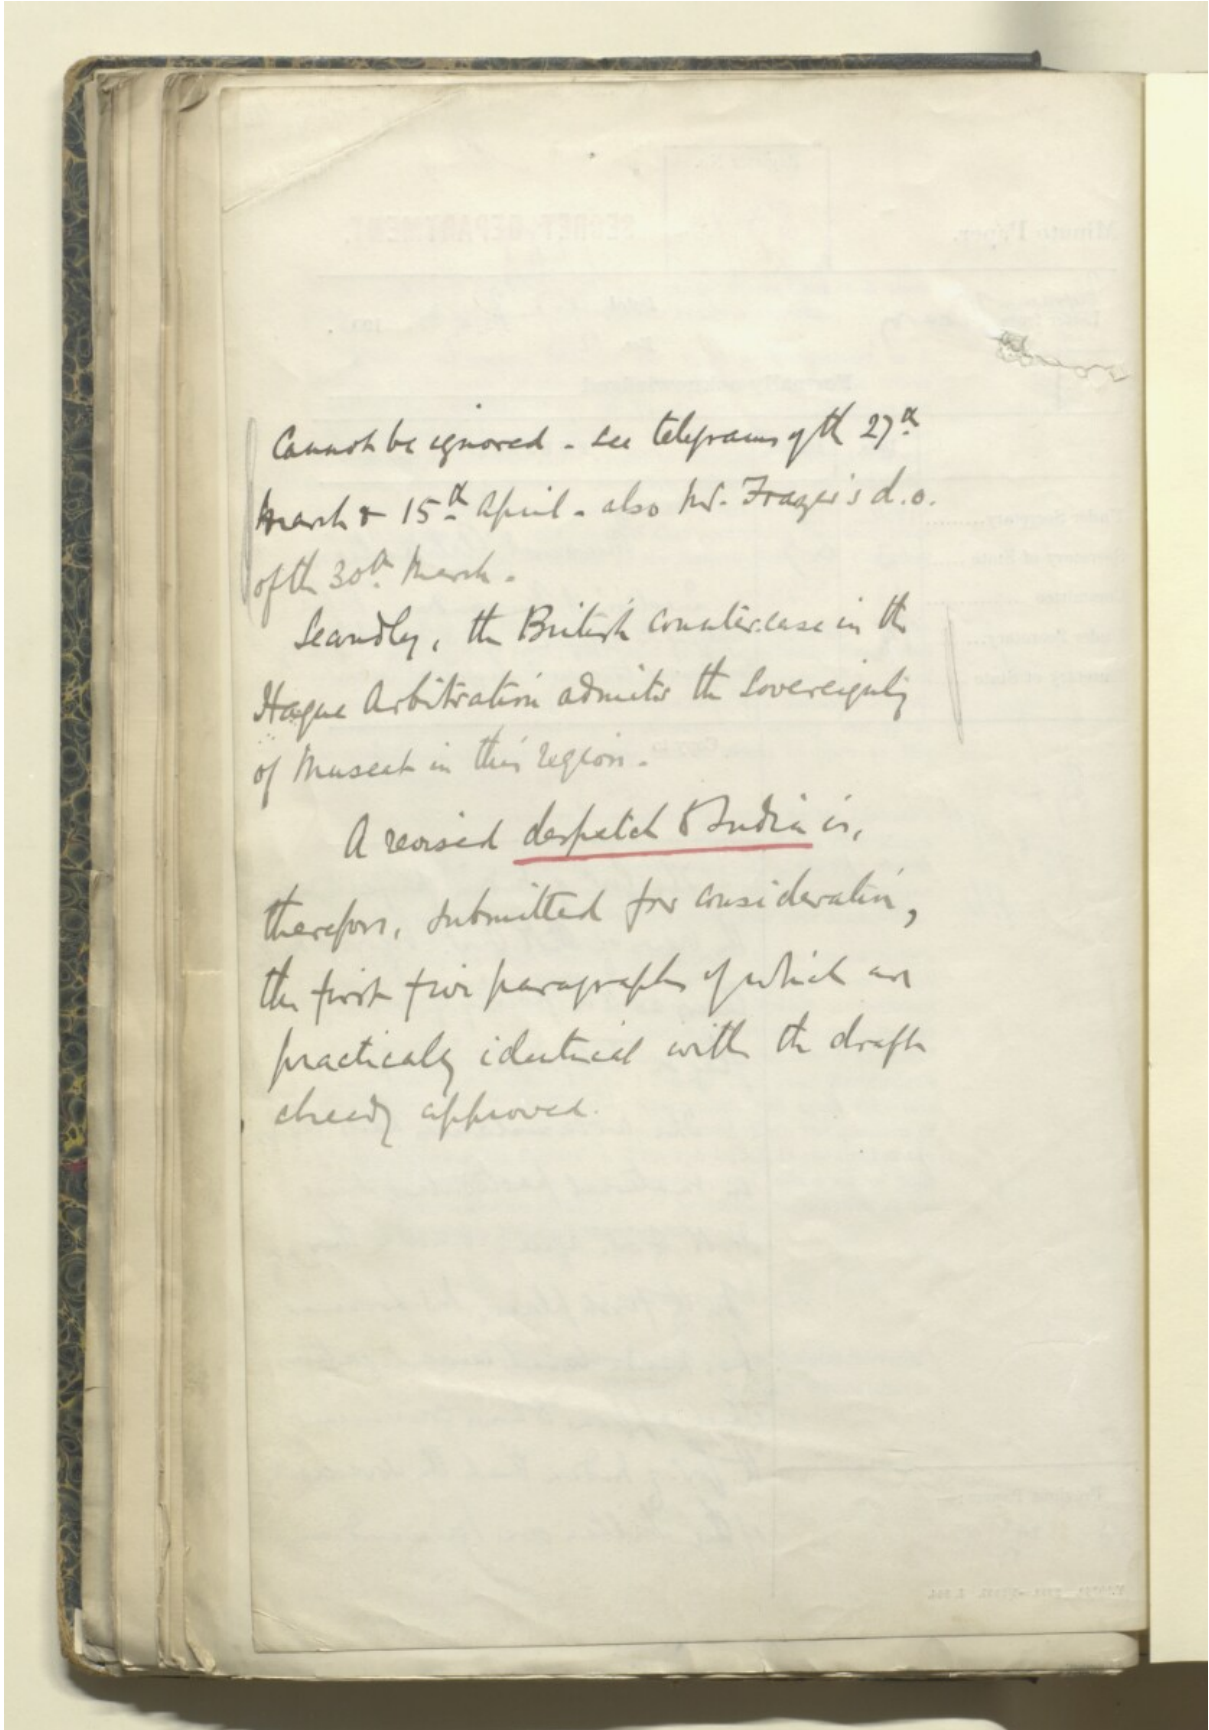 Cannot be ignored - see telegrams of the 27th
March & 15th April - also Mr. Frazer's d.o.
of the 30th March.
Secondly, the British countercase in the
Hague Arbitration admits the Sovereignty
of Muscat in this region.
A revised despatch to India is,
therefore, submitted for consideration,
the first five paragraphs of which are
practically identical with the draft
already approved.